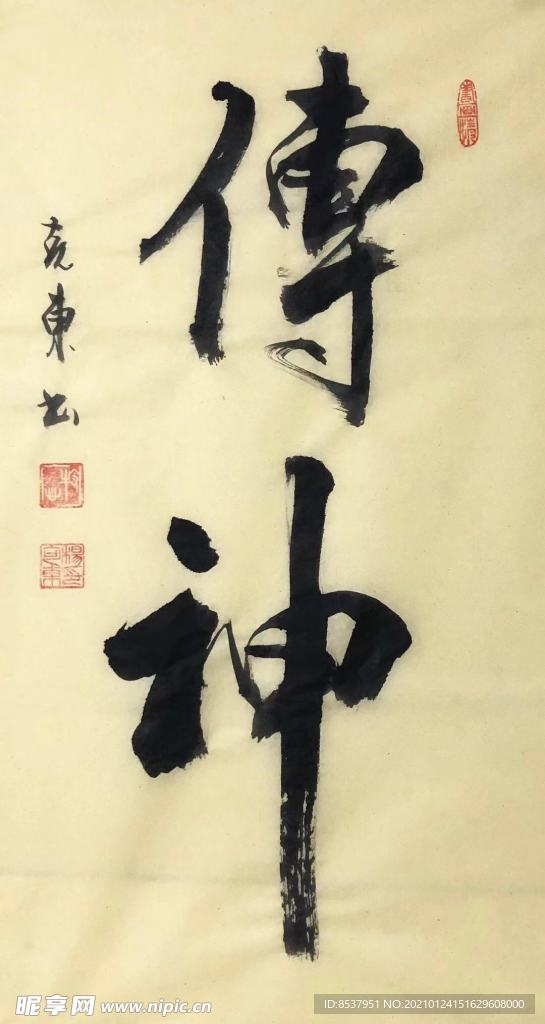 傳神
克東书
昵享网 www.nipic.cn
ID:8537951 NO:20210124151629608000